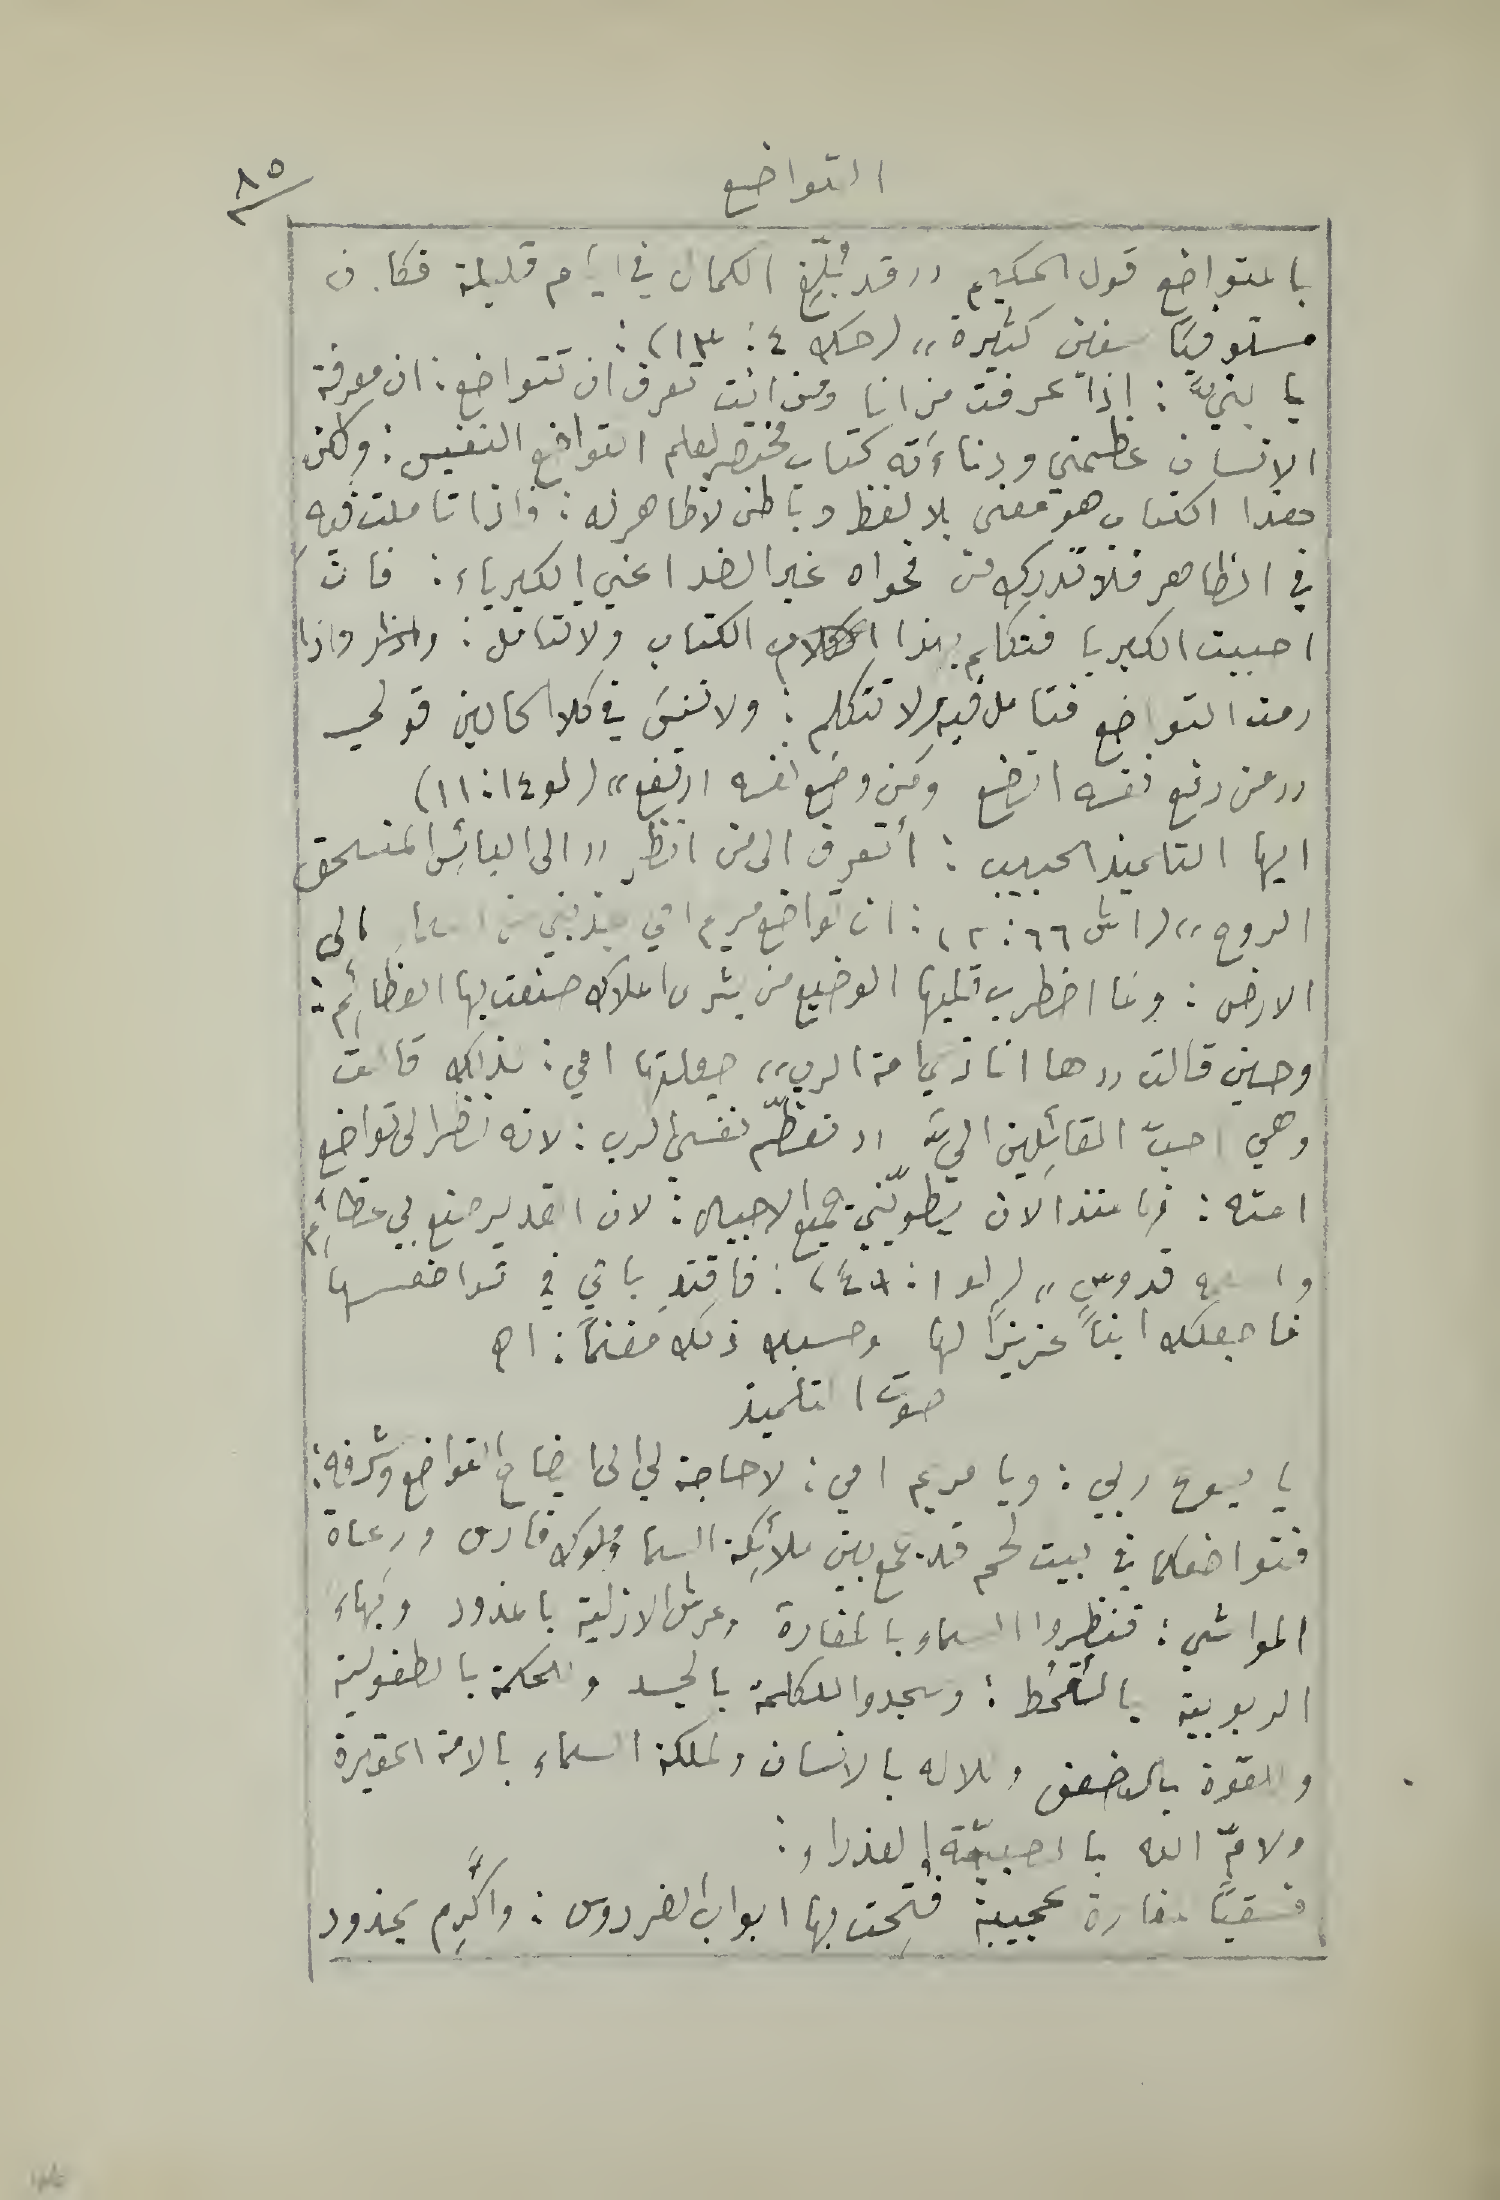 التواضع
٨٥
بالمتواضع قول الحكيم "قد بُلِّغ الكمال في ايّام قليلة فكان
مستوفيًا سنين كثيرة" (حك ٤: ١٣):
يا بنيَّ: إذا عرفت من انا ومن انت تعرف ان تتواضع: ان معرفة
الانسان عظمتي ودناءَته كتاب مختصر لعلم التواضع النفيس: ولكن
هذا الكتاب هو معنى بلا لفظ وباطن لا ظاهر له: فاذا تاملت فيه
في الظاهر فلا تدرك من فحواه غير الضد اعني الكبرياء: فان
احببت الكبريا فتكلم بهذا الكتاب ولا تتامل: واذا
رمت التواضع فتامل فيهِ لا تتكلم: ولا تنسَ في كلا الحالين قولي
"من رفع نفسه اتضع ومَن وضع نفسه ارتفع" (لو ١٤: ١١)
ايها التلميذ الحبيب: أتعرف الى من انظر "الى البائس المنسحق
الروح" (اش ٦٦: ٢): ان تواضع مريم امي جذبني من السماءِ الى
الارض: ولما اضطرب قلبها الوضيع من بشرى الملاك صنعت بها العظائِم:
وحين قالت "ها انا ذي امة الرب" جعلتها امي: لذلك قالت
وهي احبّ القائِلين اليَّ "تعظّم نفسي الرب: لانه نظر الى تواضع
امته: فها منذ الان يطوّبني جميع الاجيال: لان القدير صنع بي عظائِم
واسمه قدوس" (لو ١: ٤٦): فاقتدِ بامي في تواضعها
فاجعلك ابنًا عزيزًا لها وحسبك ذلك مغنمًا: اه
صوت التلميذ
يا يسوع ربي: ويا مريم امي: لا حاجة لي الى ايضاح التواضع وشرفه:
فتواضعكما في بيت لحم قد جمع بين ملائِكة السما وملوك فارس ورعاة
المواشي: فنظروا السماء بالمغارة وعرش الازلية بالمذود وبهاء
الربوبية بالقمُط: وسجدوا للكلمة بالجسد وللحكمة بالطفولية
وللقوة بالضعف وللاله بالانسان ولملكة السماء بالامة الحقيرة
ولامّ الله بالصبيّة العذراء:
فسقيًا لمغارة عجيبة فُتِحت بها ابواب الفردوس: واكرِم بمذود